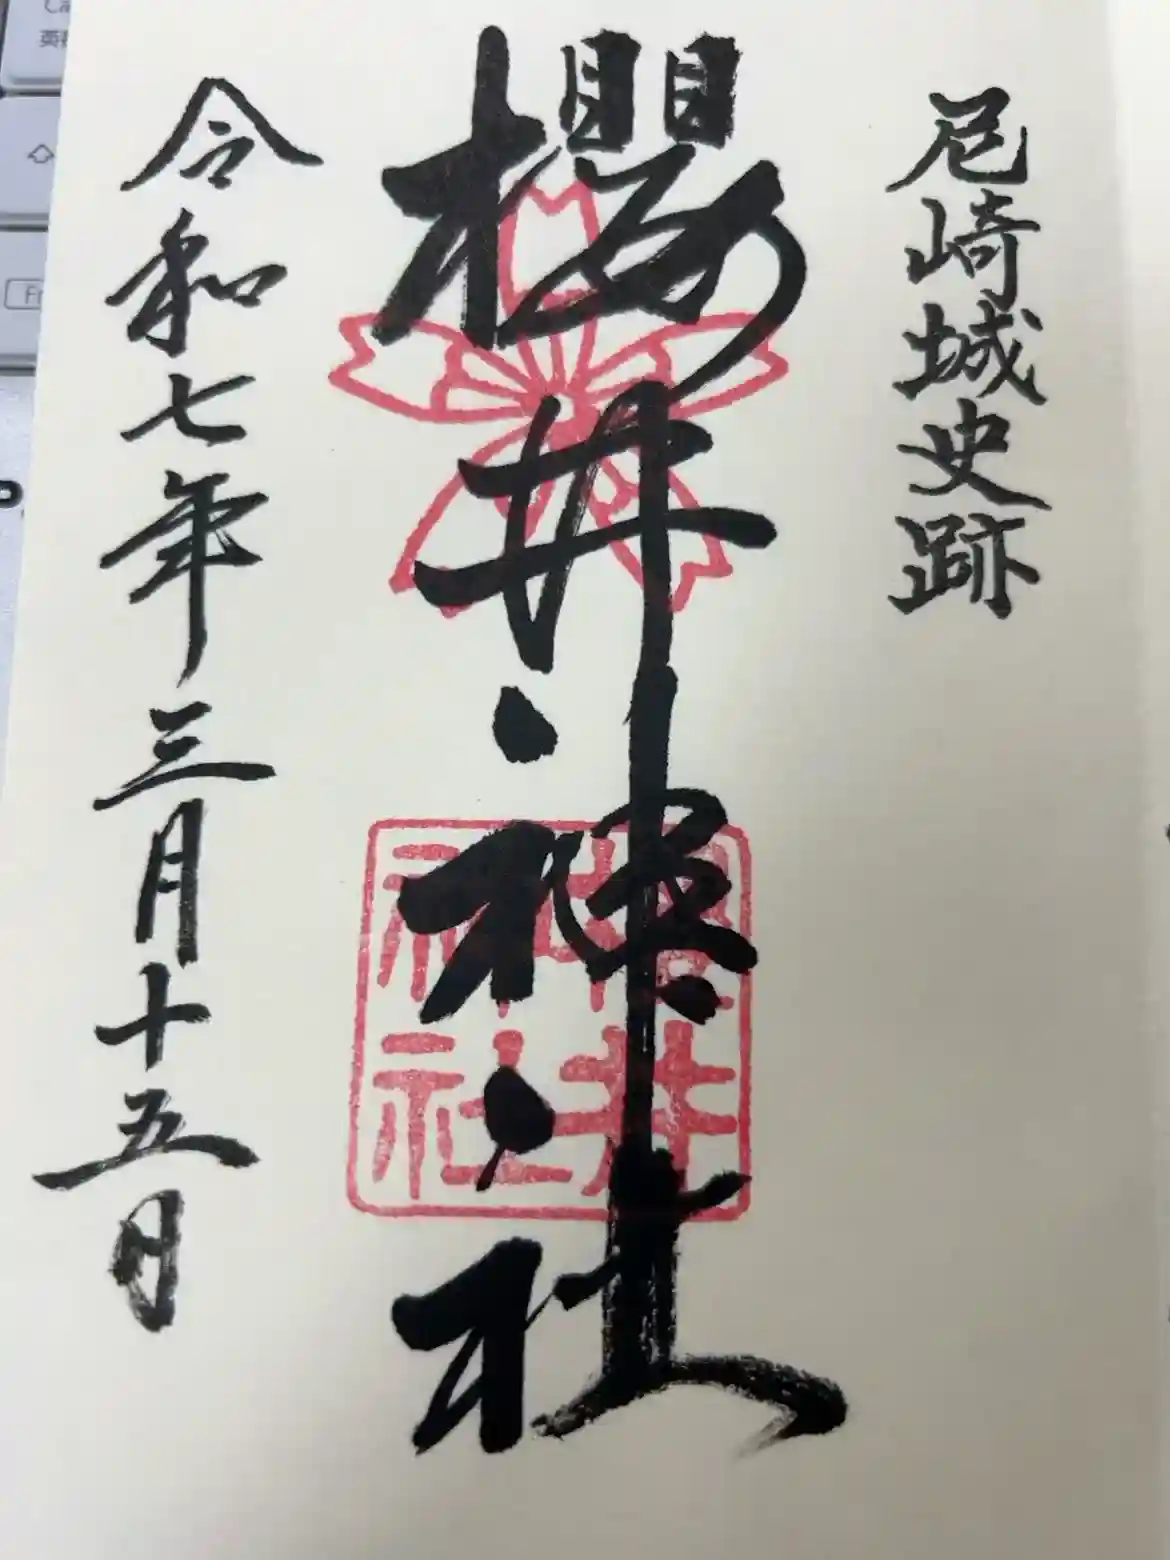 尼崎城史跡
櫻井神社
櫻井
神社
令和七年三月十五日
英